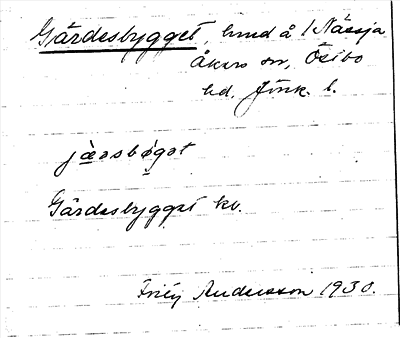 Gärdesbygget, hmd å 1 Nässja
Åkers sn, Östbo
hd. Jönk. l.
jäɷsbygət
Gärdesbygget kv.
Fritz Andersson 1930.